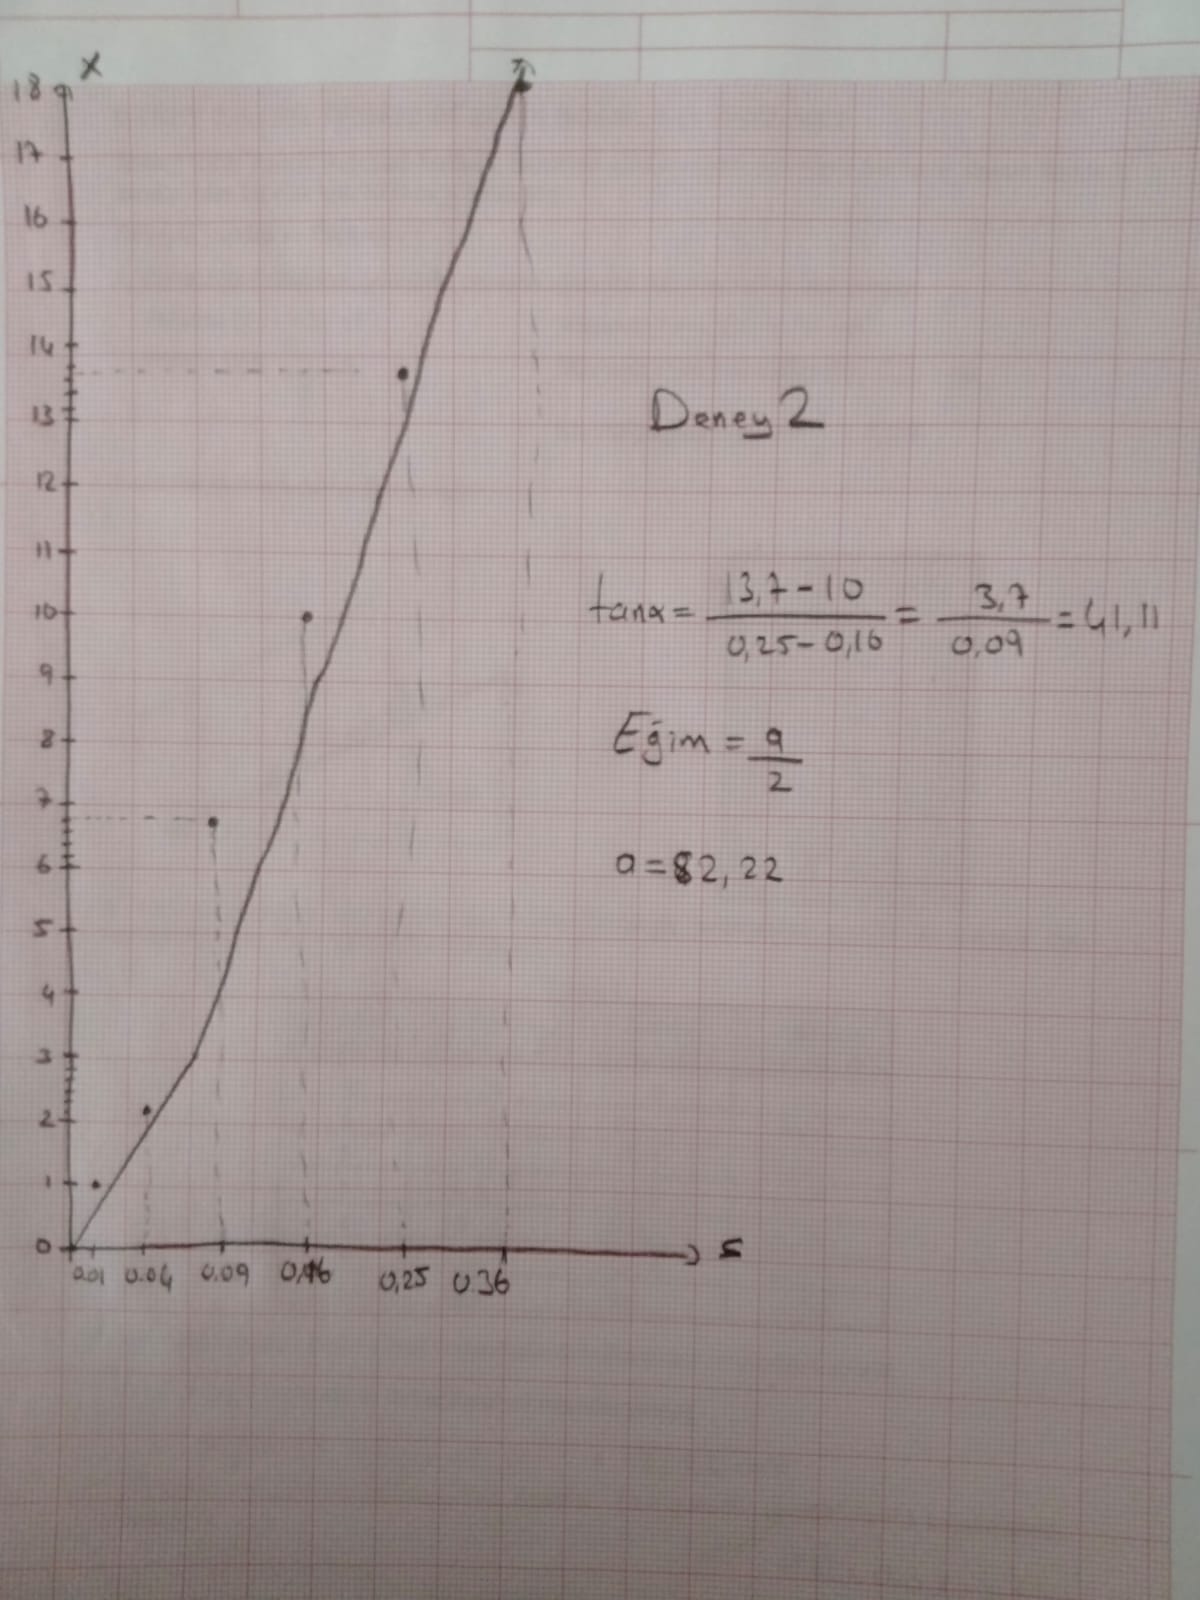 x
18
17
16
15
14
13
12
11
10
9
8
7
6
5
4
3
2
1
0
0.01 0.04 0.09 0,16 0,25 0.36
Deney 2
tanα = 13,7-10 / 0,25-0,16 = 3,7 / 0,09 = 41,11
Eğim = a / 2
a = 82,22